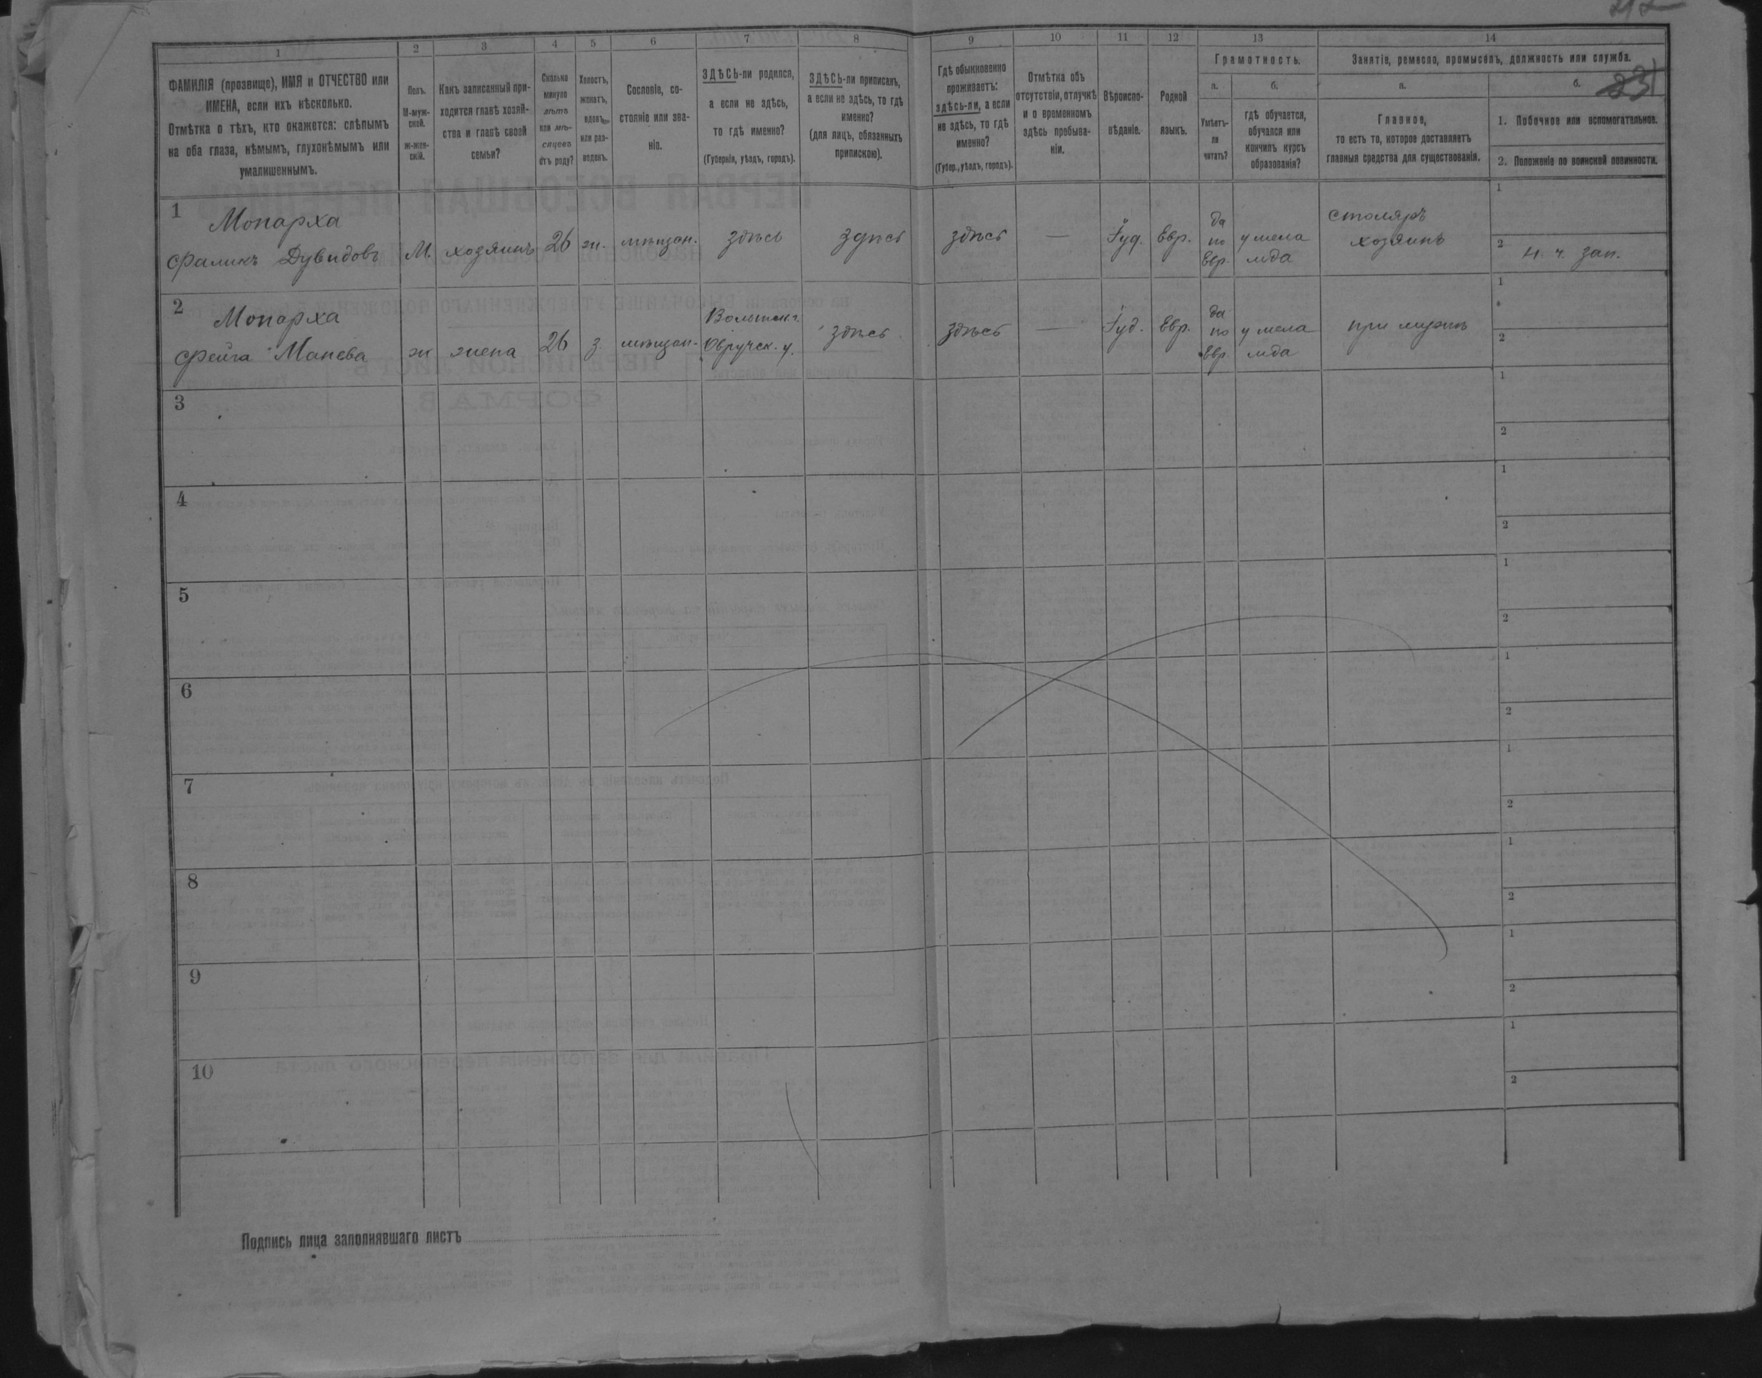 1 2 3 4 5 6 7 8 9 10 11 12 13 14
ФАМИЛІЯ (прозвище), ИМЯ и ОТЧЕСТВО или
ИМЕНА, если ихъ нѣсколько.
Отмѣтка о тѣхъ, кто окажется: слѣпымъ
на оба глаза, нѣмымъ, глухонѣмымъ или
умалишеннымъ.
Полъ.
М-муж-
ской.
ж-жен-
скій.
Какъ записанный при-
ходится главѣ хозяй-
ства и главѣ своей
семьи?
Сколько
минуло
лѣтъ
или мѣ-
сяцевъ
отъ роду?
Холостъ,
женатъ,
вдовъ,
или раз-
веденъ.
Сословіе, со-
стояніе или зва-
ніе.
ЗДѢСЬ-ли родился,
а если не здѣсь,
то гдѣ именно?
(Губернія, уѣздъ, городъ).
ЗДѢСЬ-ли приписанъ,
а если не здѣсь, то гдѣ
именно?
(для лицъ, обязанныхъ
припискою).
Гдѣ обыкновенно
проживаетъ:
здѣсь-ли, а если
не здѣсь, то гдѣ
именно?
(Губер., уѣздъ, городъ).
Отмѣтка объ
отсутствіи, отлучкѣ
и о временномъ
здѣсь пребыва-
ніи.
Вѣроиспо-
вѣданіе.
Родной
языкъ.
Грамотность.
а.
Умѣетъ-
ли
читать?
б.
гдѣ обучается,
обучался или
кончилъ курсъ
образованія?
Занятіе, ремесло, промыселъ, должность или служба.
а.
Главное,
то есть то, которое доставляетъ
главныя средства для существованія.
б.
1. Побочное или вспомогательное.
2. Положеніе по воинской повинности.
1
Монарха
Фаликъ Дувидовъ
М.
хозяинъ
26
ж.
мѣщан.
здѣсь
здѣсь
здѣсь
—
Іуд.
Евр.
да
по
Евр.
у мела
мда
столяръ
хозяинъ
1
2
н. ч. зап.
2
Монарха
Фейга Манева
ж
жена
26
з.
мѣщан.
Волынск.
Овручск. у.
здѣсь
здѣсь
—
Іуд.
Евр.
да
по
Евр.
у мела
мда
при мужѣ
1
2
3
1
2
4
1
2
5
1
2
6
1
2
7
1
2
8
1
2
9
1
2
10
1
2
Подпись лица заполнявшаго листъ